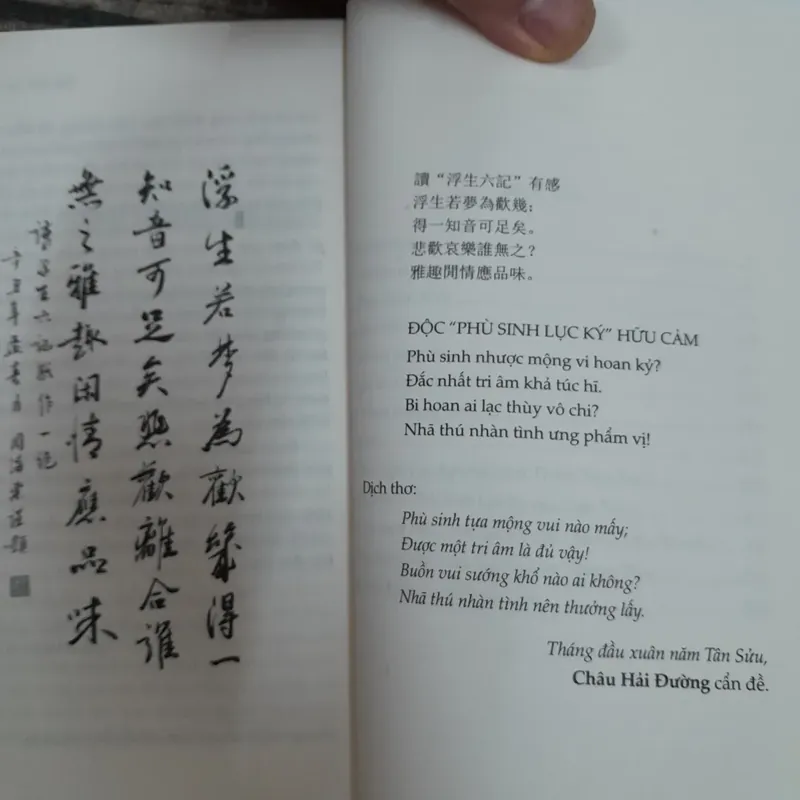 浮生若梦為歡幾得一
知音可足矣悲歡離合誰
無之雅趣闲情應品味
浮生六記 作一絕
辛丑年孟春月周海棠謹題
讀“浮生六記”有感
浮生若夢為歡幾;
得一知音可足矣。
悲歡哀樂誰無之？
雅趣閒情應品味。
ĐỘC “PHÙ SINH LỤC KÝ” HỮU CẢM
Phù sinh nhược mộng vi hoan kỷ?
Đắc nhất tri âm khả túc hĩ.
Bi hoan ai lạc thùy vô chi?
Nhã thú nhàn tình ưng phẩm vị!
Dịch thơ:
Phù sinh tựa mộng vui nào mấy;
Được một tri âm là đủ vậy!
Buồn vui sướng khổ nào ai không?
Nhã thú nhàn tình nên thưởng lấy.
Tháng đầu xuân năm Tân Sửu,
Châu Hải Đường cẩn đề.